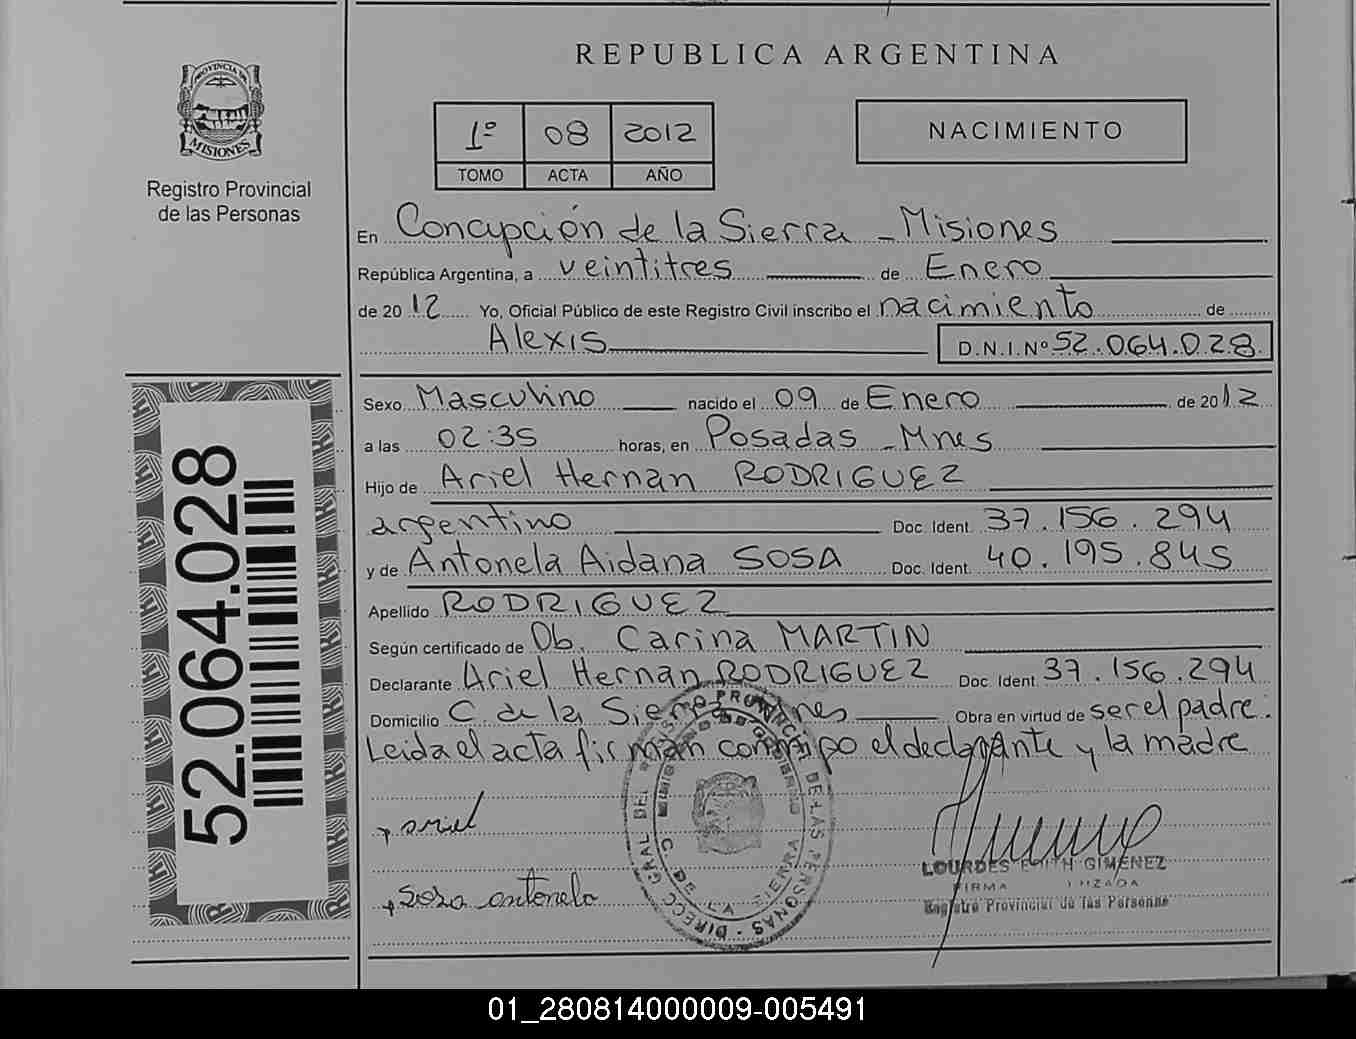 REPUBLICA ARGENTINA
PROVINCIA DE
MISIONES
Registro Provincial
de las Personas
1º 08 2012
TOMO ACTA AÑO
NACIMIENTO
En Concepción de la Sierra - Misiones
República Argentina, a veintitres de Enero
de 2012 Yo, Oficial Público de este Registro Civil inscribo el nacimiento de
Alexis D.N.I.Nº 52.064.028
Sexo Masculino nacido el 09 de Enero de 2012
a las 02:35 horas, en Posadas - Mnes
Hijo de Ariel Hernan RODRIGUEZ
argentino Doc. Ident. 37.156.294
y de Antonela Aidana SOSA Doc. Ident. 40.195.845
Apellido RODRIGUEZ
Según certificado de Ob. Carina MARTIN
Declarante Ariel Hernan RODRIGUEZ Doc. Ident. 37.156.294
Domicilio C. de la Sierra Mnes Obra en virtud de ser el padre.
Leida el acta firman conmigo el declarante y la madre
52.064.028
ariel
sosa antonela
DIRECC. GRAL DEL REGISTRO PROVINCIAL DE LAS PERSONAS
C. DE LA SIERRA
LOURDES EDITH GIMENEZ
FIRMA
Registro Provincial de las Personas
01_280814000009-005491